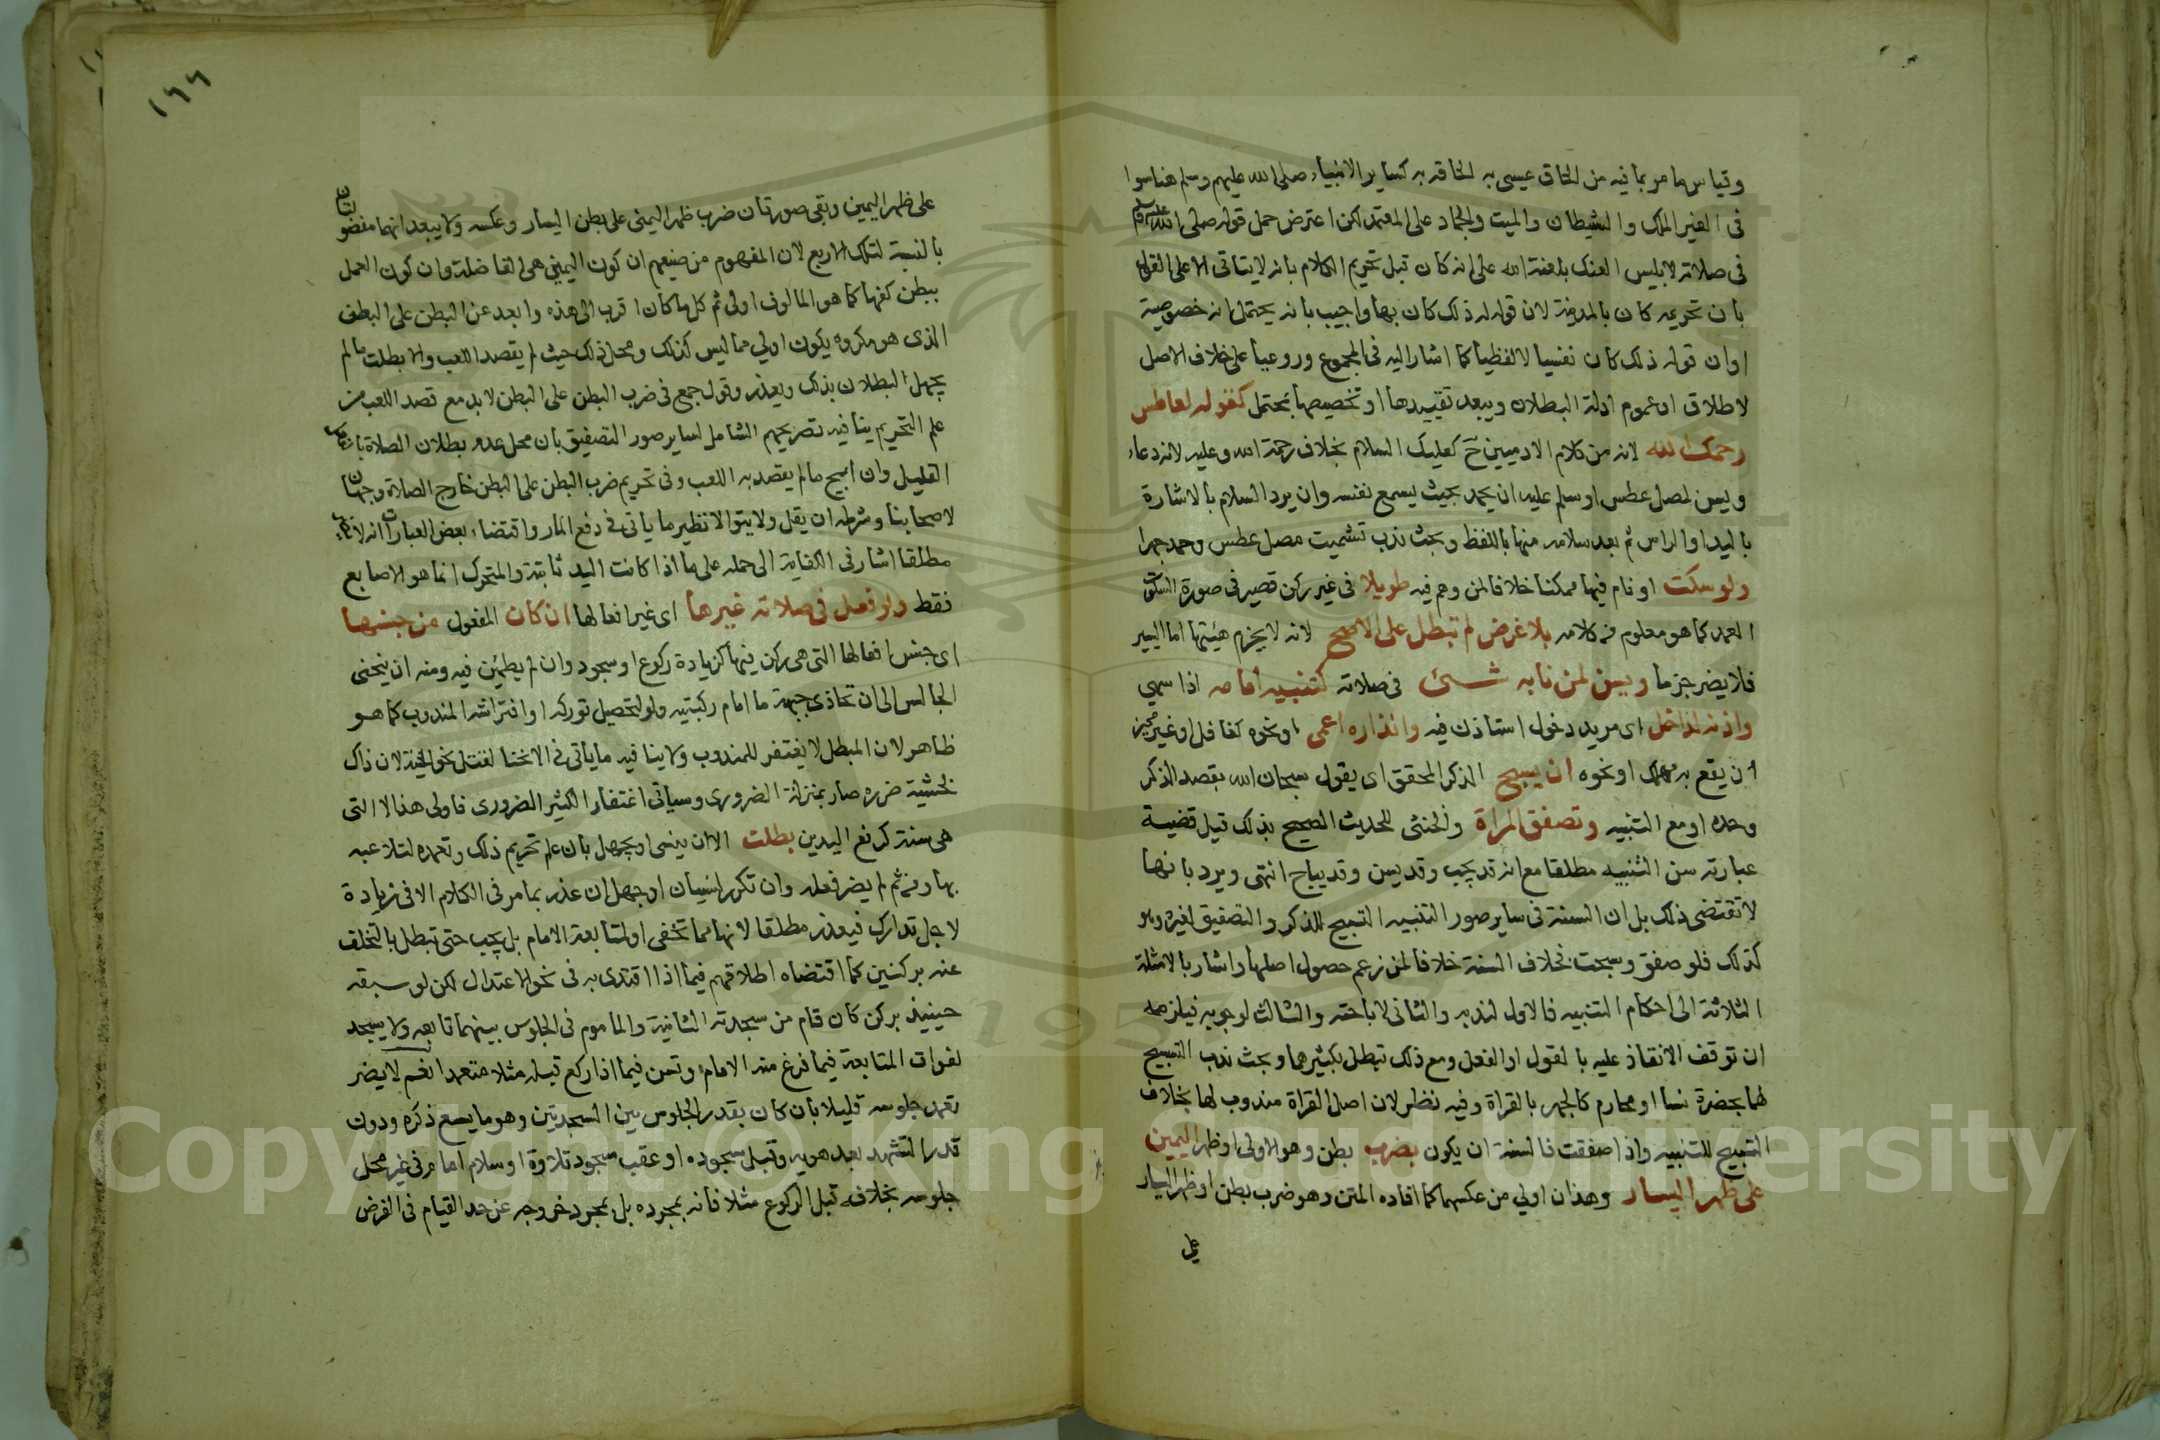 وقياس ما مر بما فيه من الحاق عيسى به الحاقه به كساير الانبياء صلى الله عليهم وسلم هنا سوا
في الغير الملك والشيطان والميت والجماد على المعتمد لكن اعترض حمل قوله صلى الله عليه وسلم
في صلاته لابليس العنك بلعنة الله على انه كان قبل تحريم الكلام بانه لا يتاتى الا على القول
بان تحريمه كان بالمدينة لان قوله له ذلك كان بها واجيب بانه يحتمل انه خصوصية
اوان قوله ذلك كان نفسيا لا لفظيا كما اشار اليه في المجموع وروعيا على خلاف الاصل
لاطلاق او عموم ادلة البطلان ويبعد تقييدها او تخصيصها بمحتمل كقوله لعاطس
رحمك الله لانه من كلام الادميين ح كعليك السلام بخلاف رحمة الله وعليه لانه دعاء
ويسن لمصل عطس او سلم عليه ان يحمد بحيث يسمع نفسه وان يرد السلام بالاشارة
باليد او الراس ثم بعد سلامه منها باللفظ وبحث ندب تشميت مصل عطس وحمد جهرا
ولو سكت او نام فيها ممكنا خلافا لمن وهم فيه طويلا في غير ركن قصير في صورة السكوت
العمد كما هو معلوم من كلامه بلا غرض لم تبطل على الاصح لانه لا يخرم هيئتها اما اليسير
فلا يضر جزما ويسن لمن نابه شيئ في صلاته كتنبيه امامه اذا سهي
واذنه لداخل اى مريد دخول استاذن فيه وانذاره اعمى او نحوه كغافل او غير مميز
ان يقع به مهلك او نحوه ان يسبح الذكر المحقق اى يقول سبحان الله بقصد الذكر
وحده او مع التنبيه وتصفق المراة والخنثى للحديث الصحيح بذلك قيل قضية
عبارته سن التنبيه مطلقا مع انه قد يجب وقد يسن وقد يباح انتهى ويرد بانها
لا تقتضى ذلك بل ان السنة في ساير صور التنبيه التسبيح للذكر والتصفيق لغيره وهو
كذلك فلو صفق وسبحت فخلاف السنة خلافا لمن زعم حصول اصلها واشار بالامثلة
الثلاثة الى احكام التنبيه فالاول لندبه والثانى لاباحته والثالث لوجوبه فيلزمه
ان توقف الانقاذ عليه بالقول او الفعل ومع ذلك تبطل بكثيرهما وبحث ندب التسبيح
لها بحضرة نسا او محارم كالجهر بالقراة وفيه نظر لان اصل القراة مندوب لها بخلاف
التسبيح للتنبيه واذا صفقت فالسنة ان يكون بضرب بطن وهو الاولى او ظهر اليمين
على ظهر اليسار وهذان اولي من عكسهما كما افاده المتن وهو ضرب بطن او ظهر اليسار
على
١٦٦
على ظهر اليمين وبقى صورتان ضرب ظهر اليمنى على بطن اليسار وعكسه ولا يبعد انهما مفضولتان
بالنسبة لتلك الاربع لان المفهوم من صنيعهم ان كون اليمنى هى الفاضلة وان كون العمل
ببطن كفها كما هو المالوف اولى ثم كل ما كان اقرب الى هذه وابعد عن البطن على البطن
الذى هو مكروه يكون اولي مما ليس كذلك ومحل ذلك حيث لم يقصد اللعب والا بطلت ما لم
يجهل البطلان بذلك ويعذر وقول جمع في ضرب البطن على البطن لا بد مع قصد اللعب من
علم التحريم ينافيه تصريحهم الشامل لساير صور التصفيق بان محل عدم بطلان الصلاة بالفعل
القليل وان ابيح ما لم يقصد به اللعب وفى تحريم ضرب البطن على البطن خارج الصلاة وجهان
لاصحابنا وشرطه ان يقل ولا يتوالا نظير ما ياتى في دفع المار واقتضاء بعض العبارات انه لا يضر
مطلقا اشار في الكفاية الى حمله على ما اذا كانت اليد ثابتة والمتحرك انما هو الاصابع
فقط ولو فعل في صلاته غيرها اى غير افعالها ان كان المفعول من جنسها
اى جنس افعالها التى هى ركن فيها كزيادة ركوع او سجود وان لم يطمئن فيه ومنه ان ينحنى
الجالس الى ان تحاذى جبهته ما امام ركبتيه ولو لتحصيل توركه او افتراشه المندوب كما هو
ظاهر لان المبطل لا يغتفر للمندوب ولا ينافيه ما ياتى في الانحنا لقتل نحو الحية لان ذاك
لخشية ضرره صار بمنزلة الضرورى وسياتى اغتفار الكثير الضرورى فاولى هذا لا التى
هى سنة كرفع اليدين بطلت الا ان ينسى او يجهل بان علم تحريم ذلك وتعمده لتلاعبه
بها ومن ثم لم يضر فعله وان تكرر لنسيان او جهل ان عذر بما مر في الكلام الا في زيادة
لاجل تدارك فيعذر مطلقا لانها مما تخفى او لمتابعة الامام بل يجب حتى تبطل بالتخلف
عنه بركنين كما اقتضاه اطلاقهم فيما اذا اقتدى به في نحو الاعتدال لكن لو سبقه
حينيذ بركن كان قام من سجدته الثانية والماموم في الجلوس بينهما تابعه ولا يسجد
لفوات المتابعة فيما فرغ منه الامام وتسن فيما اذا ركع قبله مثلا متعمدا نعم لا يضر
تعمد جلوسه قليلا بان كان بقدر الجلوس بين السجدتين وهو ما يسع ذكره ودون
قدر التشهد بعد هويه وقبل سجوده او عقب سجود تلاوة او سلام امام في غير محل
جلوسه بخلافه قبل الركوع مثلا فانه بمجرده بل بمجرد خروجه عن حد القيام في الفرض
Copyright © King Saud University
1957